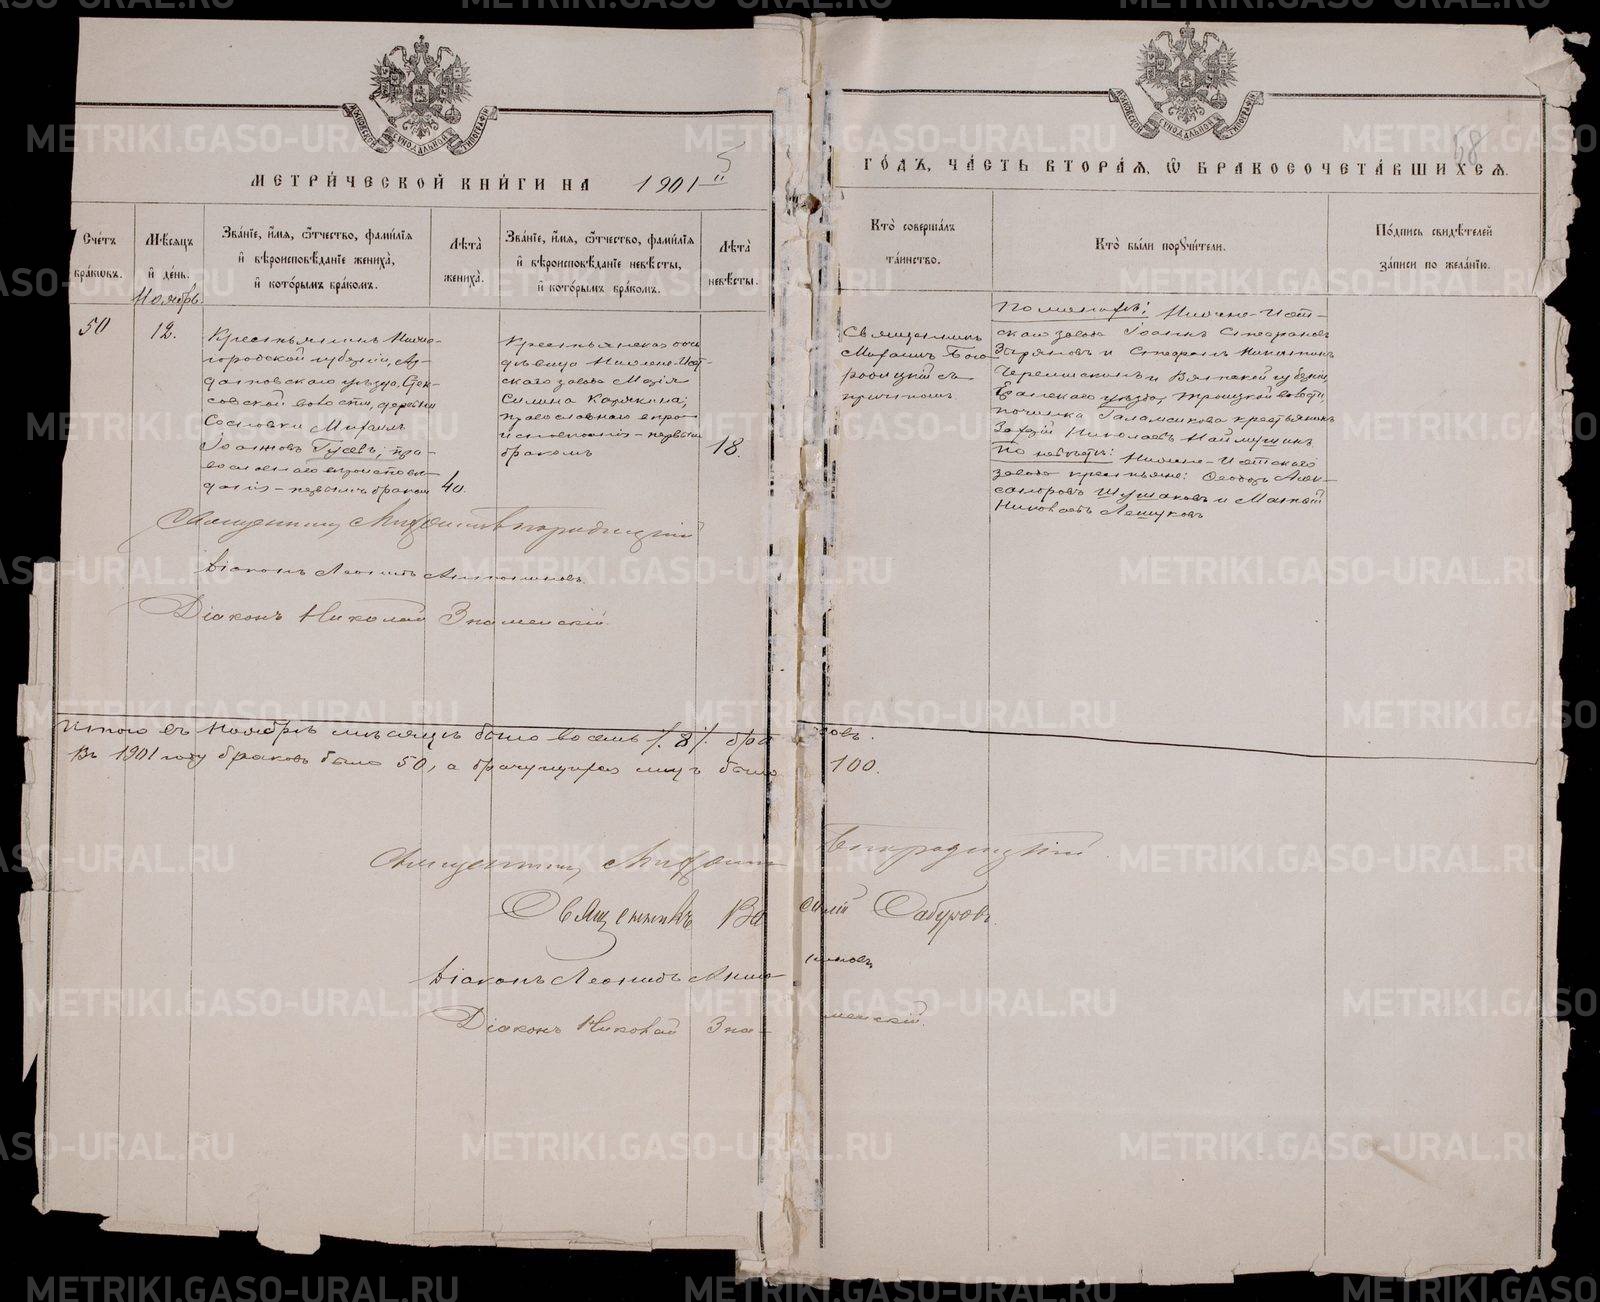 МЕТРИЧЕСКОЙ КНИГИ НА 1901
ГОДЪ, ЧАСТЬ ВТОРАЯ, Ѽ БРАКОСОЧЕТАВШИХСЯ.
58
Счетъ
браковъ.
Мѣсяцъ
и день.
Ноябрь.
Званіе, имя, отчество, фамилія
и вѣроисповѣданіе жениха,
и которымъ бракомъ.
Лѣта
жениха.
Званіе, имя, отчество, фамилія
и вѣроисповѣданіе невѣсты,
и которымъ бракомъ.
Лѣта
невѣсты.
Кто совершалъ
таинство.
Кто были поручители.
Подпись свидѣтелей
записи по желанію.
50
12.
Крестьянинъ Ниже-
городской губерніи, Ар-
датовскаго уѣзда,
совской волости, деревни
Сосновки Михаилъ
Іоанновъ Гусевъ, пра-
вославнаго вѣроисповѣ-
данія - первымъ бракомъ
40.
Крестьянская
дѣвица Нижне-Исет-
скаго завода Марія
Силина Карякина,
православнаго вѣро-
исповѣданія - первымъ
бракомъ
18.
Священникъ
Михаилъ Бого-
родицкій съ
причтомъ
По женихѣ: Нижне-Исет-
скаго завода Іоаннъ Стефановъ
Зыряновъ и Стефанъ Никитинъ
Черемискинъ и Вятской губерніи,
уѣзда, Троицкой волости,
починка крестьянинъ
Николаевъ Наймушинъ
По невѣстѣ: Нижне-Исетскаго
завода крестьяне: Феодоръ Алек-
сандровъ Шушаковъ и Матвѣй
Николаевъ Лешуковъ
Священникъ Михаилъ Богородицкій
Діаконъ Леонидъ
Діаконъ Николай Знаменскій
Итого въ Ноябрѣ мѣсяцѣ было восемь /.8/. браковъ.
Въ 1901 году браковъ было 50, а брачущихся лицъ было 100.
Священникъ Михаилъ Богородицкій
Священникъ Василій Сабуровъ.
Діаконъ Леонидъ
Діаконъ Николай Знаменскій.
METRIKI.GASO-URAL.RU